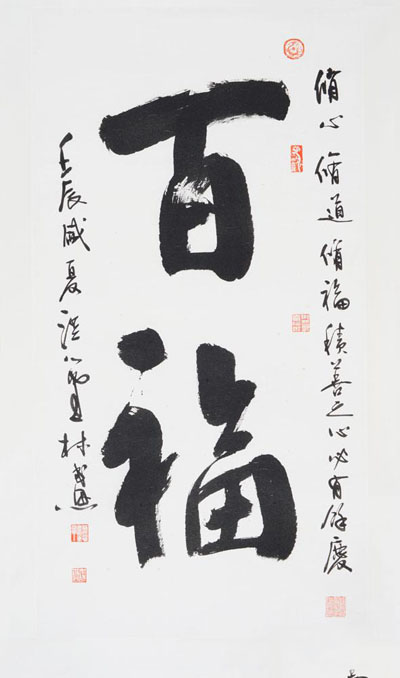 脩心脩道脩福積善之心必有餘慶
百福
壬辰盛夏 林